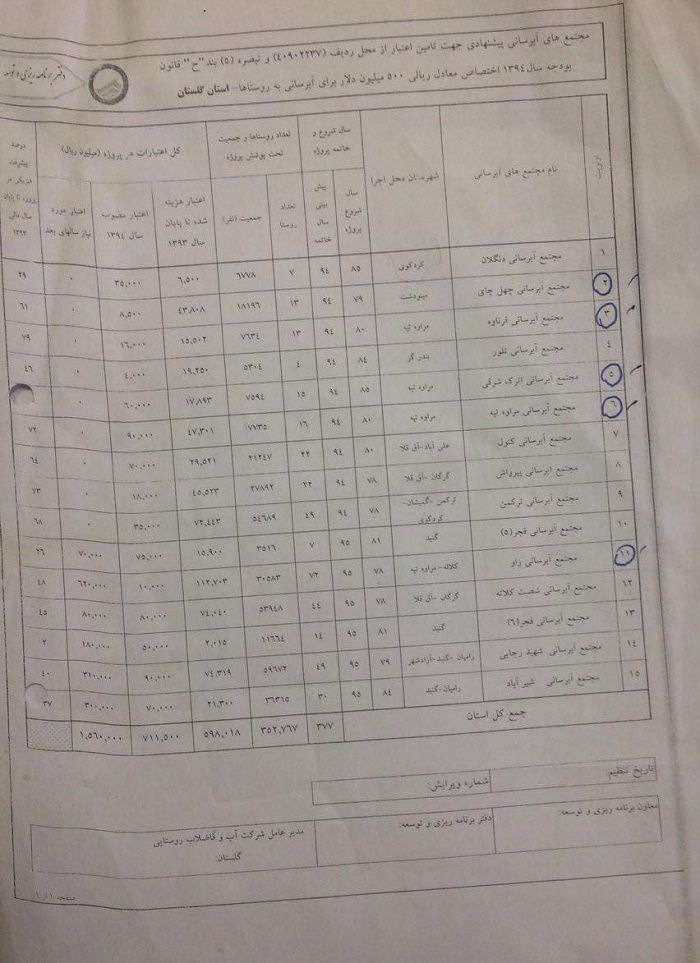 مجتمع های آبرسانی پیشنهادی جهت تامین اعتبار از محل ردیف (۴۰۹۰۲۲۳۷) و تبصره (۵) بند"ح" قانون
بودجه سال ۱۳۹۴ اختصاص معادل ریالی ۵۰۰ میلیون دلار برای آبرسانی به روستاها– استان گلستان
دفتر برنامه ریزی و توسعه
ردیف نام مجتمع های آبرسانی شهرستان محل اجرا سال شروع و خاتمه پروژه تعداد روستاها و جمعیت تحت پوشش پروژه کل اعتبارات در پروژه (میلیون ریال) درصد پیشرفت فیزیکی در پروژه تا پایان سال مالی ۱۳۹۳
سال شروع پروژه پیش بینی سال خاتمه تعداد روستا جمعیت (نفر) اعتبار هزینه شده تا پایان سال ۱۳۹۳ اعتبار مصوب سال ۱۳۹۴ اعتبار مورد نیاز سالهای بعد
۱ مجتمع آبرسانی دنگلان کردکوی ۸۵ ۹۴ ۷ ۶۷۷۸ ۶,۵۰۰ ۳۵,۰۰۰ ۰ ۲۹
۲ مجتمع آبرسانی چهل چای مینودشت ۷۹ ۹۴ ۱۳ ۱۸۱۹۶ ۴۳,۸۰۸ ۸,۵۰۰ ۰ ۶۱
۳ مجتمع آبرسانی قرناوه مراوه تپه ۸۰ ۹۴ ۱۳ ۷۶۳۴ ۱۵,۵۰۲ ۱۶,۰۰۰ ۰ ۷۹
۴ مجتمع آبرسانی تلور بندر گز ۸۴ ۹۴ ۴ ۵۳۰۴ ۱۹,۲۵۰ ۴,۰۰۰ ۰ ۴۶
۵ مجتمع آبرسانی اترک شرقی مراوه تپه ۸۵ ۹۴ ۱۵ ۷۵۹۴ ۱۷,۸۹۳ ۶۰,۰۰۰ ۰
۶ مجتمع آبرسانی مراوه تپه مراوه تپه ۸۰ ۹۴ ۱۶ ۷۷۳۵ ۴۷,۳۰۱ ۹۰,۰۰۰ ۰ ۷۲
۷ مجتمع آبرسانی کتول علی آباد-آق قلا ۸۰ ۹۴ ۲۲ ۲۱۲۴۷ ۲۹,۵۲۱ ۷۰,۰۰۰ ۰ ۶۴
۸ مجتمع آبرسانی پیرواش گرگان -آق قلا ۷۸ ۹۴ ۲۲ ۲۷۸۹۲ ۴۵,۵۲۳ ۱۸,۰۰۰ ۰ ۷۳
۹ مجتمع آبرسانی ترکمن ترکمن -گمیشان- کردکوی ۷۸ ۹۴ ۴۹ ۵۴۶۸۹ ۷۲,۴۴۳ ۳۵,۰۰۰ ۰ ۶۸
۱۰ مجتمع آبرسانی فجر(۵) گنبد ۸۱ ۹۵ ۷ ۳۵۱۶ ۱۵,۹۰۰ ۷۵,۰۰۰ ۷۰,۰۰۰ ۲۶
۱۱ مجتمع آبرسانی زاو کلاله- مراوه تپه ۷۸ ۹۵ ۷۲ ۳۰۵۸۳ ۱۱۲,۷۰۳ ۱۰,۰۰۰ ۶۲۰,۰۰۰ ۴۸
۱۲ مجتمع آبرسانی شصت کلاته گرگان -آق قلا ۷۸ ۹۵ ۴۴ ۵۳۹۴۸ ۷۴,۰۴۰ ۸۰,۰۰۰ ۸۰,۰۰۰ ۴۵
۱۳ مجتمع آبرسانی فجر(۶) گنبد ۸۱ ۹۵ ۱۴ ۱۱۶۶۴ ۲,۰۱۵ ۵۰,۰۰۰ ۱۸۰,۰۰۰ ۲
۱۴ مجتمع آبرسانی شهید رجایی رامیان -گنبد-آزادشهر ۷۹ ۹۵ ۴۹ ۵۹۶۷۲ ۷۴,۳۱۹ ۹۰,۰۰۰ ۳۱۰,۰۰۰ ۴۰
۱۵ مجتمع آبرسانی شیر آباد رامیان-گنبد ۸۴ ۹۵ ۳۰ ۳۶۳۱۵ ۲۱,۳۰۰ ۷۰,۰۰۰ ۳۰۰,۰۰۰ ۳۷
جمع کل استان ۳۷۷ ۳۵۲,۷۶۷ ۵۹۸,۰۱۸ ۷۱۱,۵۰۰ ۱,۵۶۰,۰۰۰
تاریخ تنظیم: شماره ویرایش:
معاون برنامه ریزی و توسعه: دفتر برنامه ریزی و توسعه: مدیر عامل شرکت آب و فاضلاب روستایی
گلستان:
صفحه ۱ از ۱